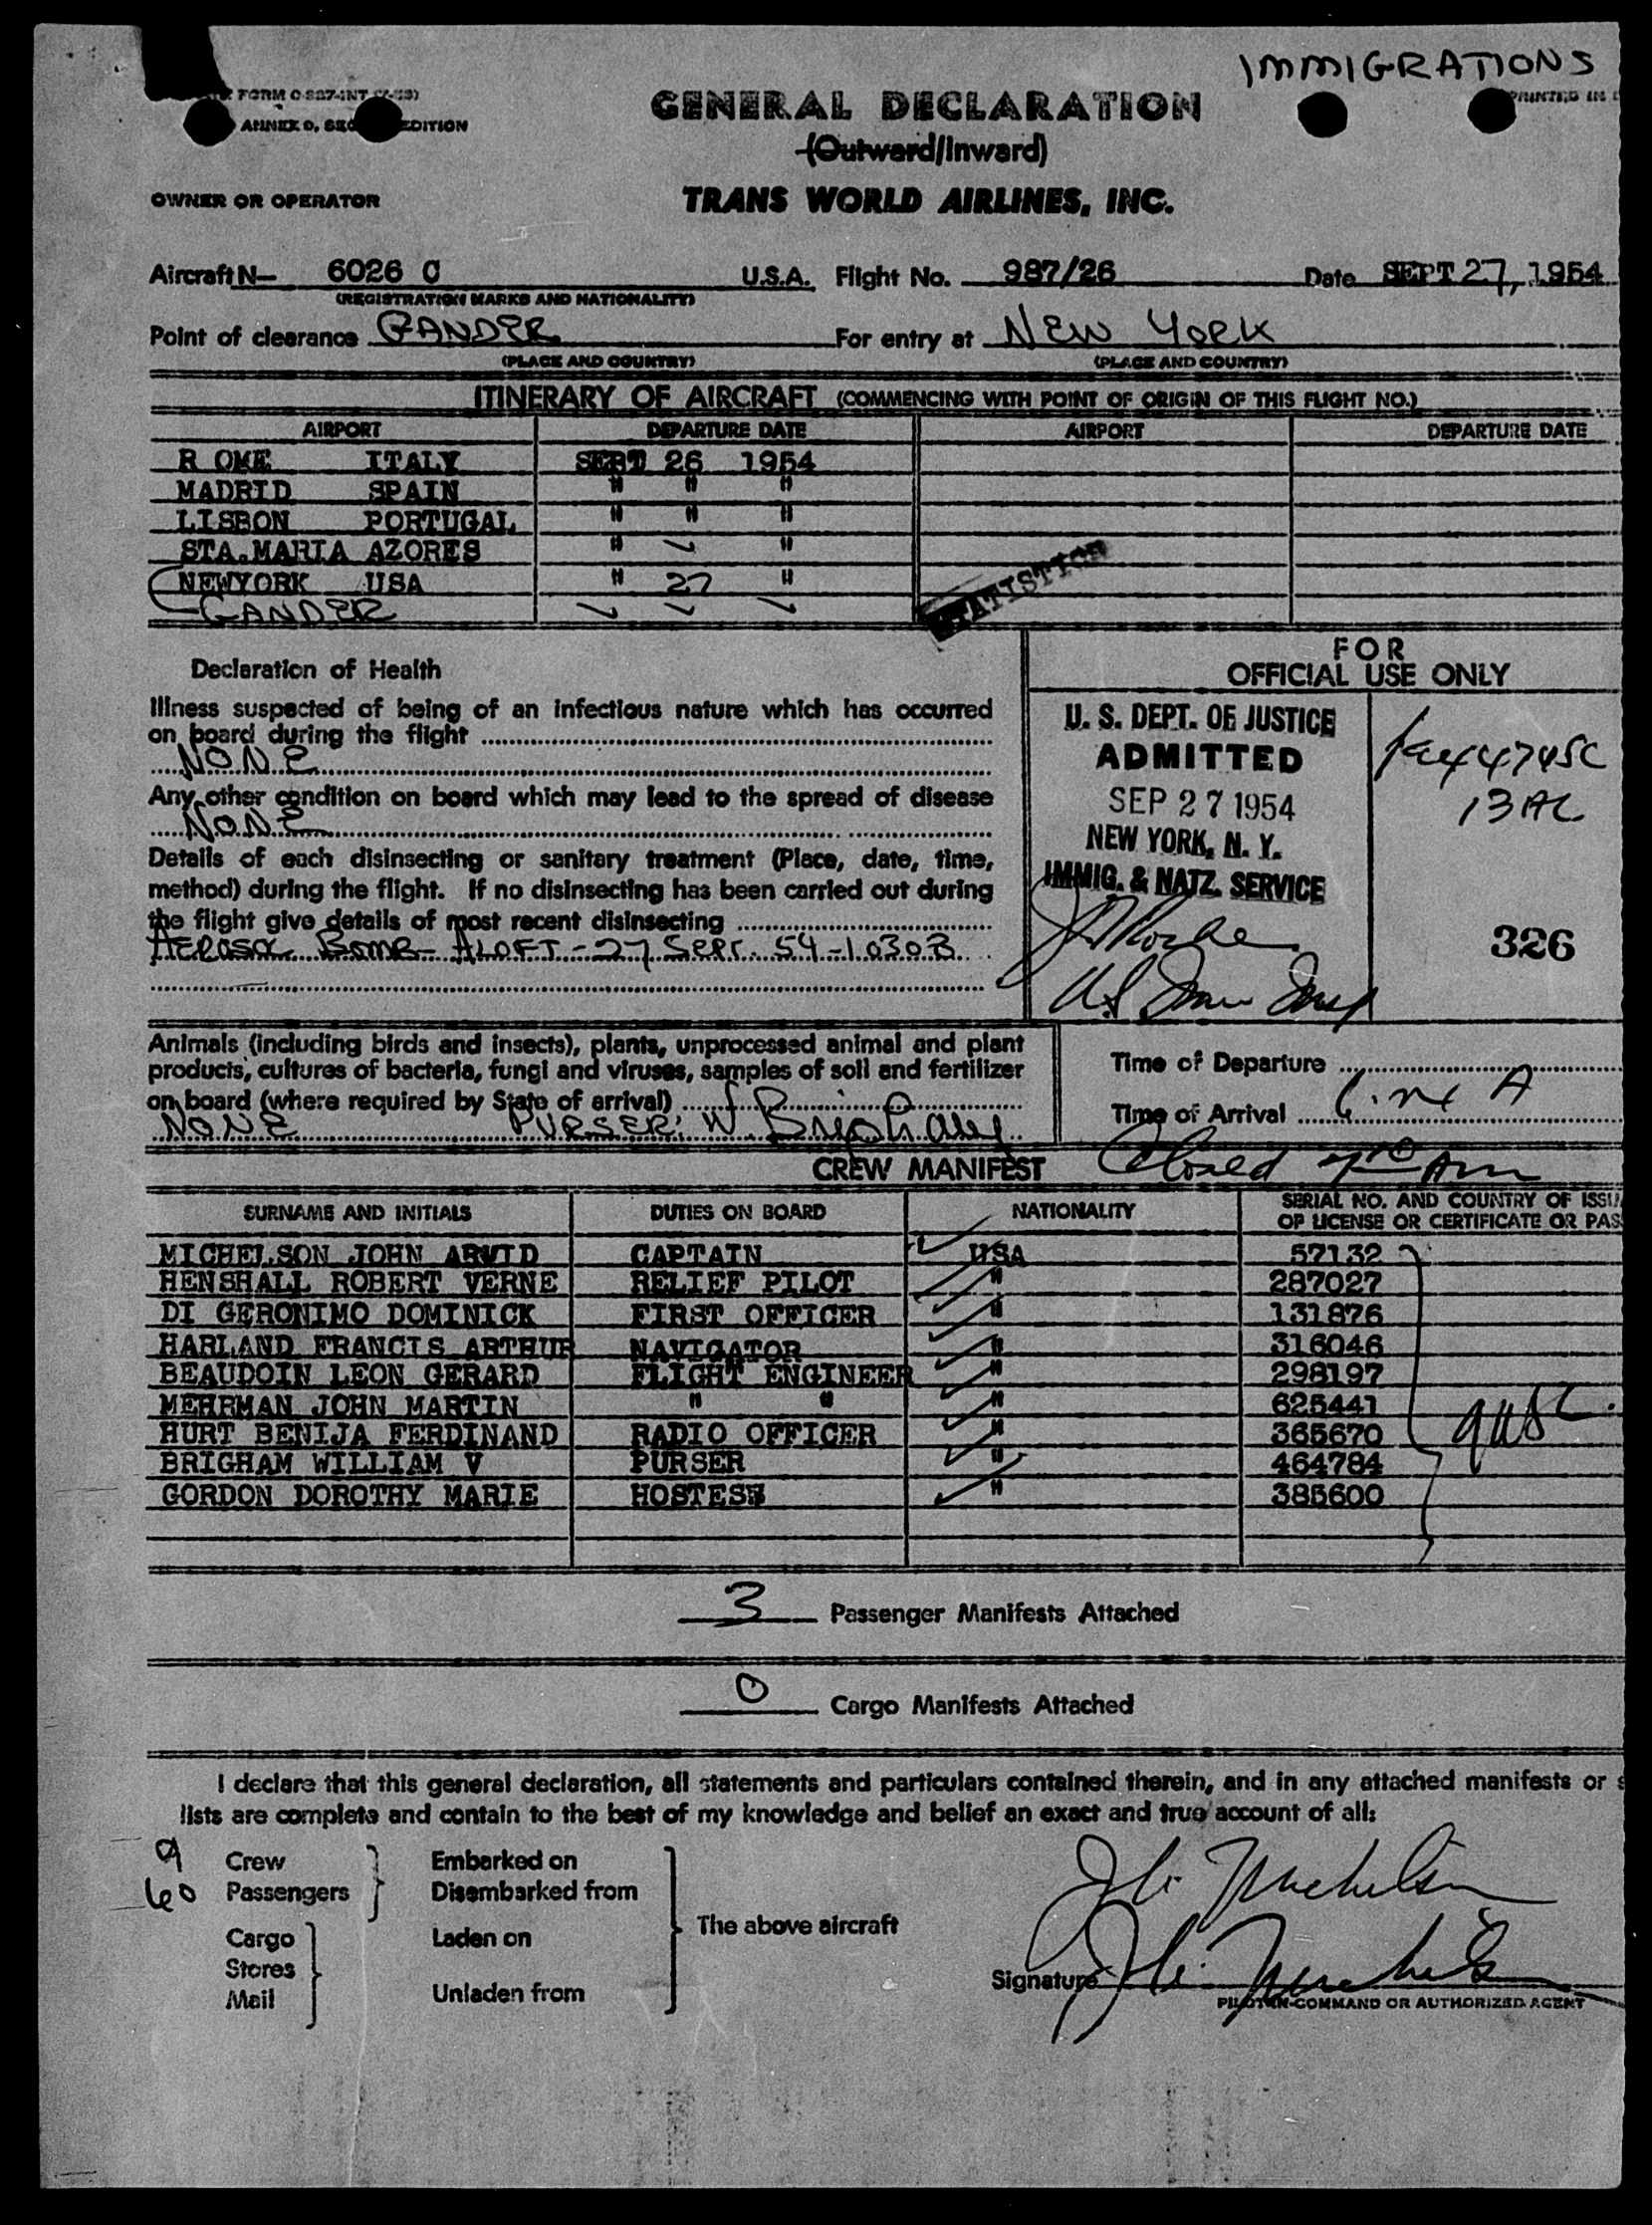 IMMIGRATIONS
FORM O-827-INT
PRINTED IN
ANNEX 9, EDITION
GENERAL DECLARATION
(Outward/Inward)
OWNER OR OPERATOR
TRANS WORLD AIRLINES, INC.
Aircraft N— 6026 C U.S.A. Flight No. 987/26 Date SEPT 27, 1954
(REGISTRATION MARKS AND NATIONALITY)
Point of clearance GANDER For entry at NEW YORK
(PLACE AND COUNTRY) (PLACE AND COUNTRY)
ITINERARY OF AIRCRAFT (COMMENCING WITH POINT OF ORIGIN OF THIS FLIGHT NO.)
AIRPORT DEPARTURE DATE AIRPORT DEPARTURE DATE
R OME ITALY SEPT 26 1954
MADRID SPAIN " " "
LISBON PORTUGAL " " "
STA.MARIA AZORES " "
NEWYORK USA " 27 "
GANDER
STATISTICS
Declaration of Health
Illness suspected of being of an infectious nature which has occurred
on board during the flight
NONE
Any other condition on board which may lead to the spread of disease
NONE
Details of each disinsecting or sanitary treatment (Place, date, time,
method) during the flight. If no disinsecting has been carried out during
the flight give details of most recent disinsecting
AEROSOL BOMB - ALOFT - 27 SEPT. 54 - 1030Z
FOR
OFFICIAL USE ONLY
U. S. DEPT. OF JUSTICE
ADMITTED
SEP 27 1954
NEW YORK, N. Y.
IMMIG. & NATZ. SERVICE
326
Animals (including birds and insects), plants, unprocessed animal and plant
products, cultures of bacteria, fungi and viruses, samples of soil and fertilizer
on board (where required by State of arrival)
NONE PURSER: W. Brigham
Time of Departure
Time of Arrival
CREW MANIFEST Closed 7 10 Am
SURNAME AND INITIALS DUTIES ON BOARD NATIONALITY SERIAL NO. AND COUNTRY OF ISSU
OF LICENSE OR CERTIFICATE OR PAS
MICHELSON JOHN ARVID CAPTAIN USA 57132
HENSHALL ROBERT VERNE RELIEF PILOT " 287027
DI GERONIMO DOMINICK FIRST OFFICER " 131876
HARLAND FRANCIS ARTHUR NAVIGATOR " 316046
BEAUDOIN LEON GERARD FLIGHT ENGINEER " 298197
MEHRMAN JOHN MARTIN " " " 625441
HURT BENIJA FERDINAND RADIO OFFICER " 365670
BRIGHAM WILLIAM V PURSER " 464784
GORDON DOROTHY MARIE HOSTESS " 385600
9 USC.
3 Passenger Manifests Attached
0 Cargo Manifests Attached
I declare that this general declaration, all statements and particulars contained therein, and in any attached manifests or s
lists are complete and contain to the best of my knowledge and belief an exact and true account of all:
9 Crew Embarked on
60 Passengers Disembarked from
The above aircraft
Cargo Laden on
Stores
Mail Unladen from
Signature
PILOT-IN-COMMAND OR AUTHORIZED AGENT